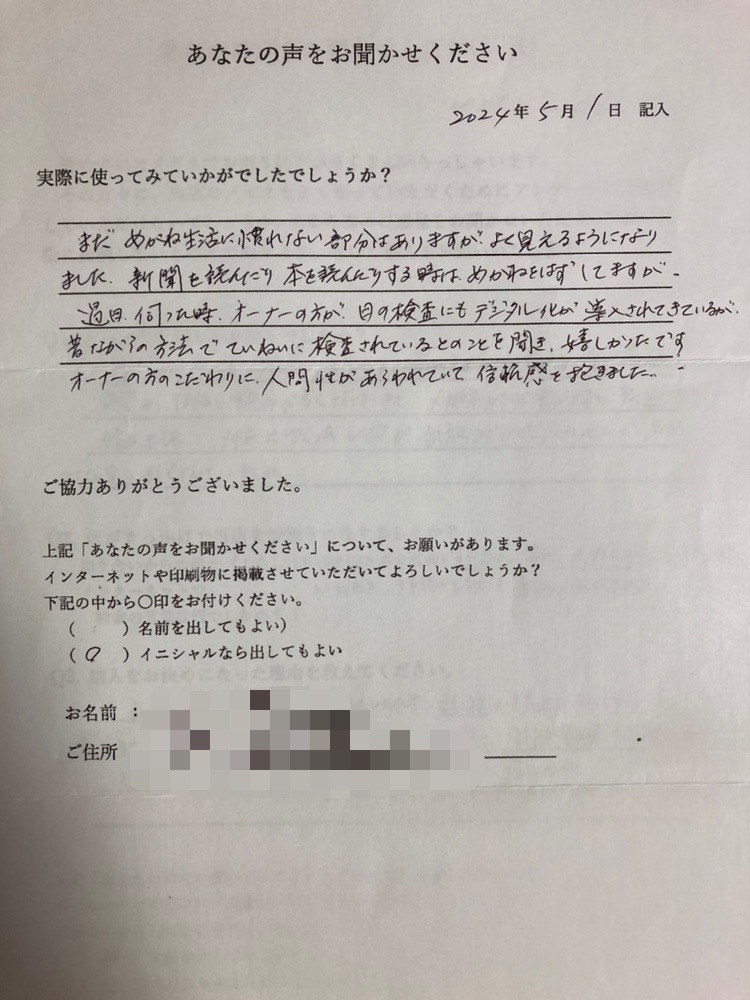 あなたの声をお聞かせください
2024年5月1日 記入
実際に使ってみていかがでしたでしょうか？
まだ めがね生活に慣れない部分はありますが、よく見えるようになり
ました。新聞を読んだり 本を読んだりする時は、めがねをはずしてますが、
過日、伺った時、オーナーの方が、目の検査にもデジタル化が導入されてきているが、
昔ながらの方法でていねいに検査されているとのことを聞き、嬉しかったです
オーナーの方のこだわりに、人間性があらわれていて、信頼感を抱きました。
ご協力ありがとうございました。
上記「あなたの声をお聞かせください」について、お願いがあります。
インターネットや印刷物に掲載させていただいてよろしいでしょうか？
下記の中から〇印をお付けください。
（　）名前を出してもよい）
（○）イニシャルなら出してもよい
お名前 ：
ご住所